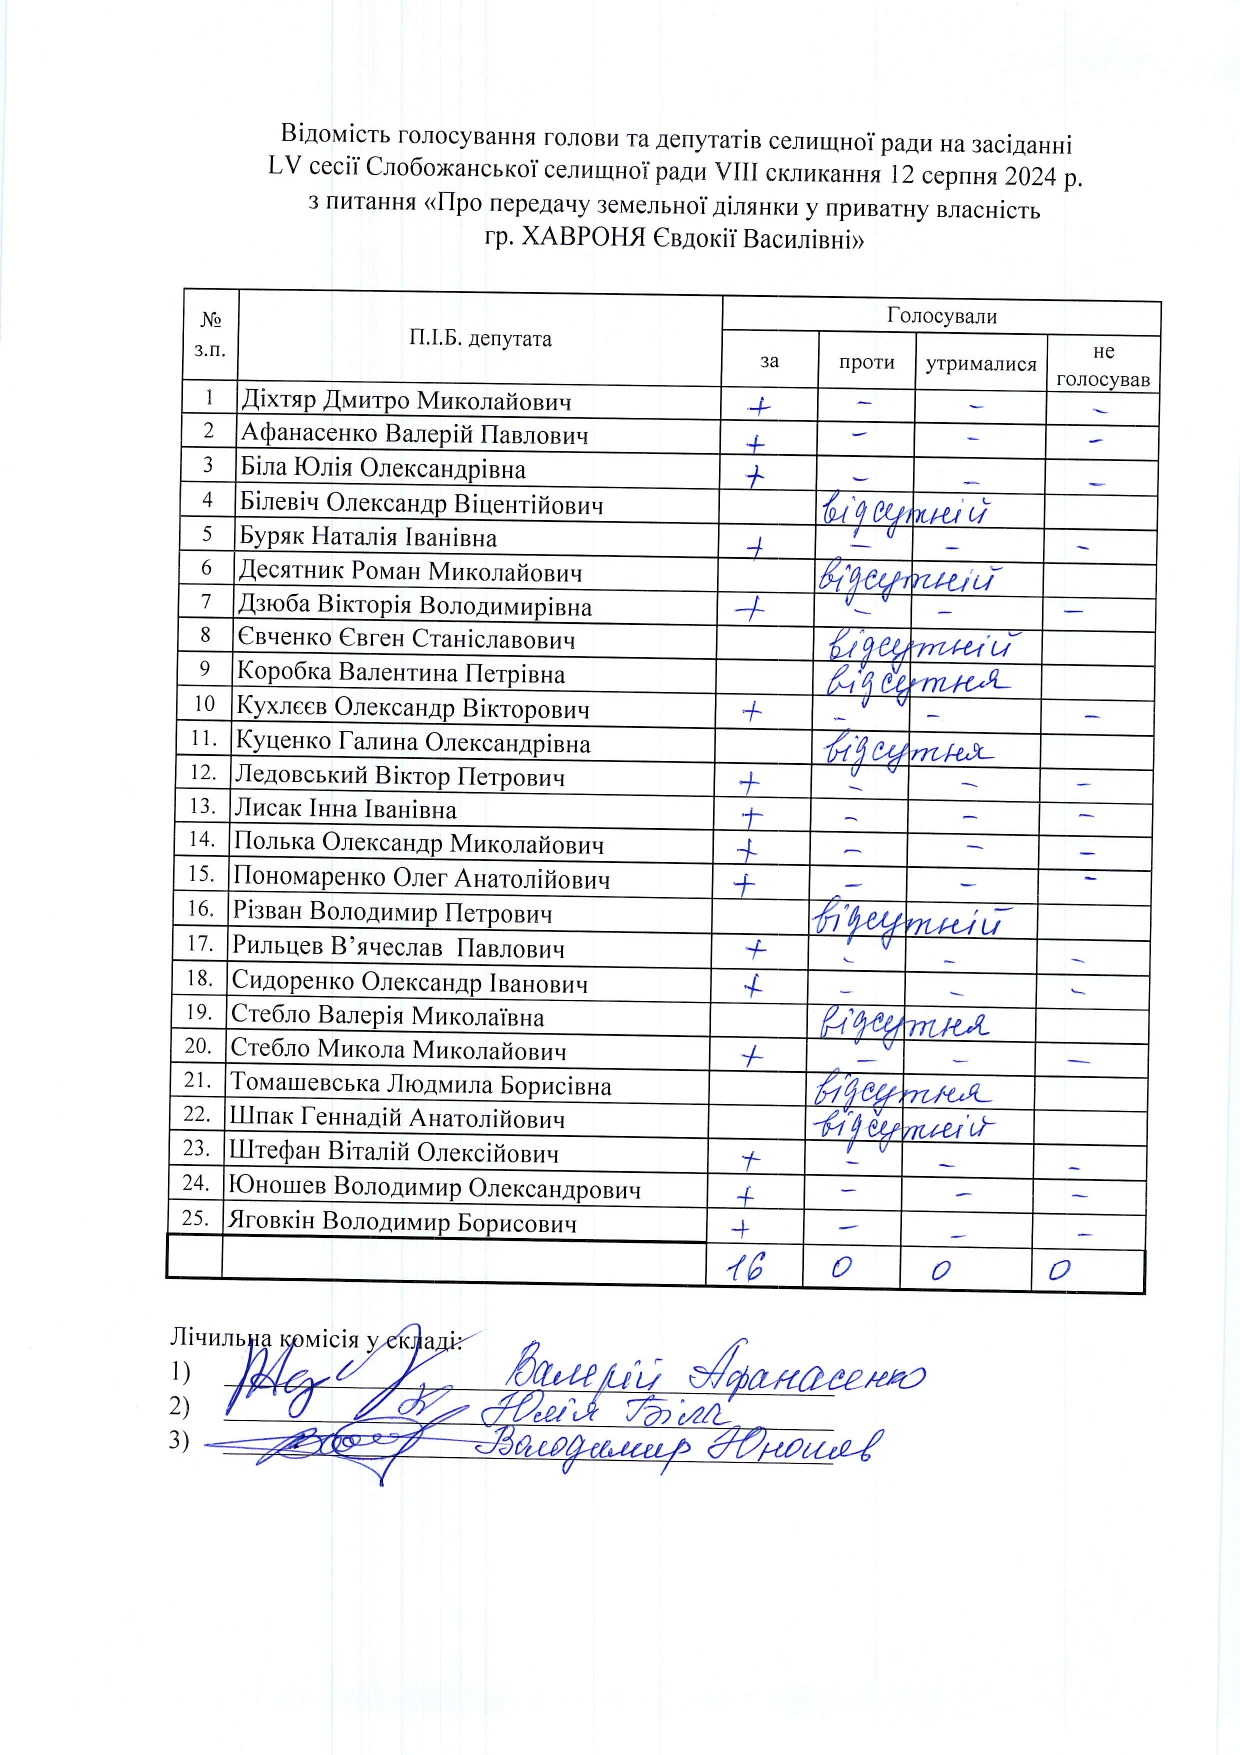 Відомість голосування голови та депутатів селищної ради на засіданні
LV сесії Слобожанської селищної ради VIII скликання 12 серпня 2024 р.
з питання «Про передачу земельної ділянки у приватну власність
гр. ХАВРОНЯ Євдокії Василівні»
№ з.п. П.І.Б. депутата Голосували
за проти утрималися не голосував
1 Діхтяр Дмитро Миколайович + - - -
2 Афанасенко Валерій Павлович + - - -
3 Біла Юлія Олександрівна + - - -
4 Білевіч Олександр Віцентійович відсутній
5 Буряк Наталія Іванівна + - - -
6 Десятник Роман Миколайович відсутній
7 Дзюба Вікторія Володимирівна + - - -
8 Євченко Євген Станіславович відсутній
9 Коробка Валентина Петрівна відсутня
10 Кухлєєв Олександр Вікторович + - - -
11. Куценко Галина Олександрівна відсутня
12. Ледовський Віктор Петрович + - - -
13. Лисак Інна Іванівна + - - -
14. Полька Олександр Миколайович + - - -
15. Пономаренко Олег Анатолійович + - - -
16. Різван Володимир Петрович відсутній
17. Рильцев В’ячеслав Павлович + - - -
18. Сидоренко Олександр Іванович + - - -
19. Стебло Валерія Миколаївна відсутня
20. Стебло Микола Миколайович + - - -
21. Томашевська Людмила Борисівна відсутня
22. Шпак Геннадій Анатолійович відсутній
23. Штефан Віталій Олексійович + - - -
24. Юношев Володимир Олександрович + - - -
25. Яговкін Володимир Борисович + - - -
16 0 0 0
Лічильна комісія у складі:
1) Валерій Афанасенко
2) Юлія Біла
3) Володимир Юношев